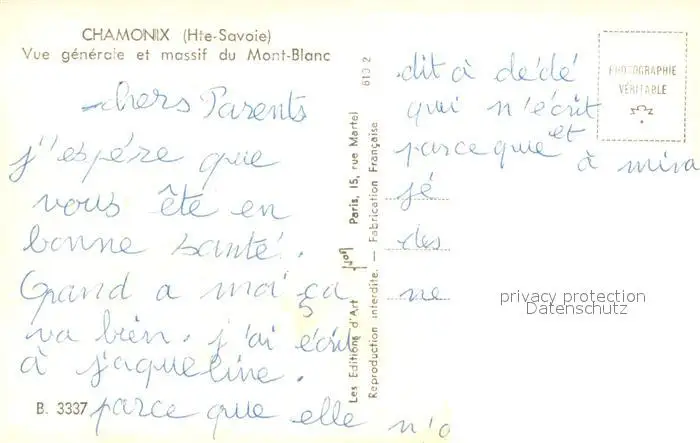 CHAMONIX (Hte-Savoie)
Vue générale et massif du Mont-Blanc
chers Parents
j'espére que
vous ête en
bonne santé.
Quand a moi ça
va bien. j'ai écrit
à jaqueline.
B. 3337
parce que elle n'a
Les Editions d'Art Paris, 15, rue Martel
Reproduction interdite. — Fabrication Française
dit à dédé
qui n'écrit
parce que et à mira
jé
des
ne
PHOTOGRAPHIE
VÉRITABLE
privacy protection
Datenschutz